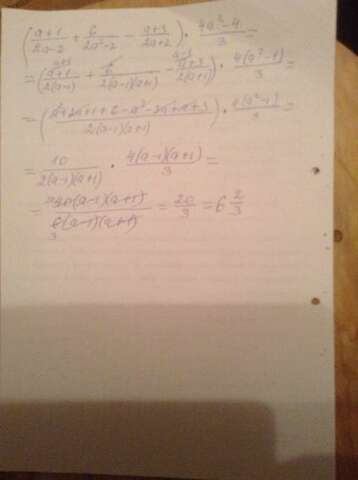 (a+1/2a-2 + 6/2a²-2 - a+3/2a+2) · 4a²-4/3 =
= (a+1/2(a-1) + 6/2(a-1)(a+1) - a+3/2(a+1)) · 4(a²-1)/3 =
= (a²+2a+1+6-a²-3a+a+3/2(a-1)(a+1)) · 4(a²-1)/3 =
= 10/2(a-1)(a+1) · 4(a-1)(a+1)/3 =
= 40(a-1)(a+1)/6(a-1)(a+1) = 20/3 = 6 2/3